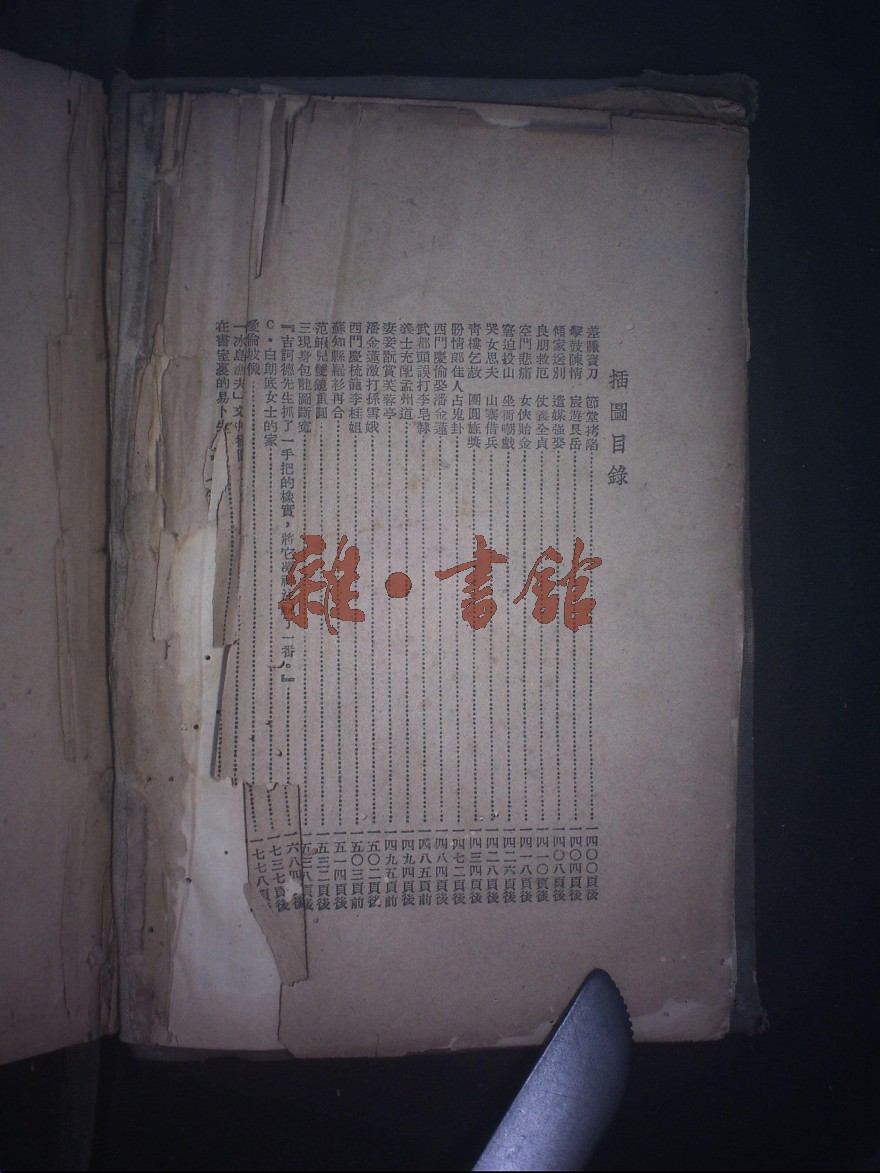 插圖目錄
差賺賣刀 節堂拷陷 一四〇〇頁後
擊鼓陳情 宸遊艮岳 一四〇四頁後
傾家送別 遣媒强娶 一四〇八頁後
良朋救厄 仗義全貞 一四一〇頁後
空門悲痛 女俠貽金 一四一八頁後
窘迫投山 坐衙嘲戲 一四二六頁後
哭女思夫 山寨借兵 一四二八頁後
青樓乞赦 團圓旌獎 一四三四頁後
盼情郎佳人占鬼卦 一四七二頁後
西門慶偷娶潘金蓮 一四八四頁後
武都頭誤打李皂隸 一四八五頁前
義士充配孟州道 一四九四頁後
妻妾翫賞芙蓉亭 一四九五頁前
潘金蓮激打孫雪娥 一五〇二頁後
西門慶梳籠李桂姐 一五〇三頁前
蘇知縣羅衫再合 一五一四頁後
范鰍兒雙鏡重圓 一五三二頁後
三現身包龍圖斷寃 一五三八頁後
『吉訶德先生抓了一手把的橡實，將它凝神 了一番。』 一六八四 後
C·白朗底女士的家 一七三七頁後
愛倫坡像 一七七八頁
「冰島漁夫」文
在書室裏的易卜生
雜·書館